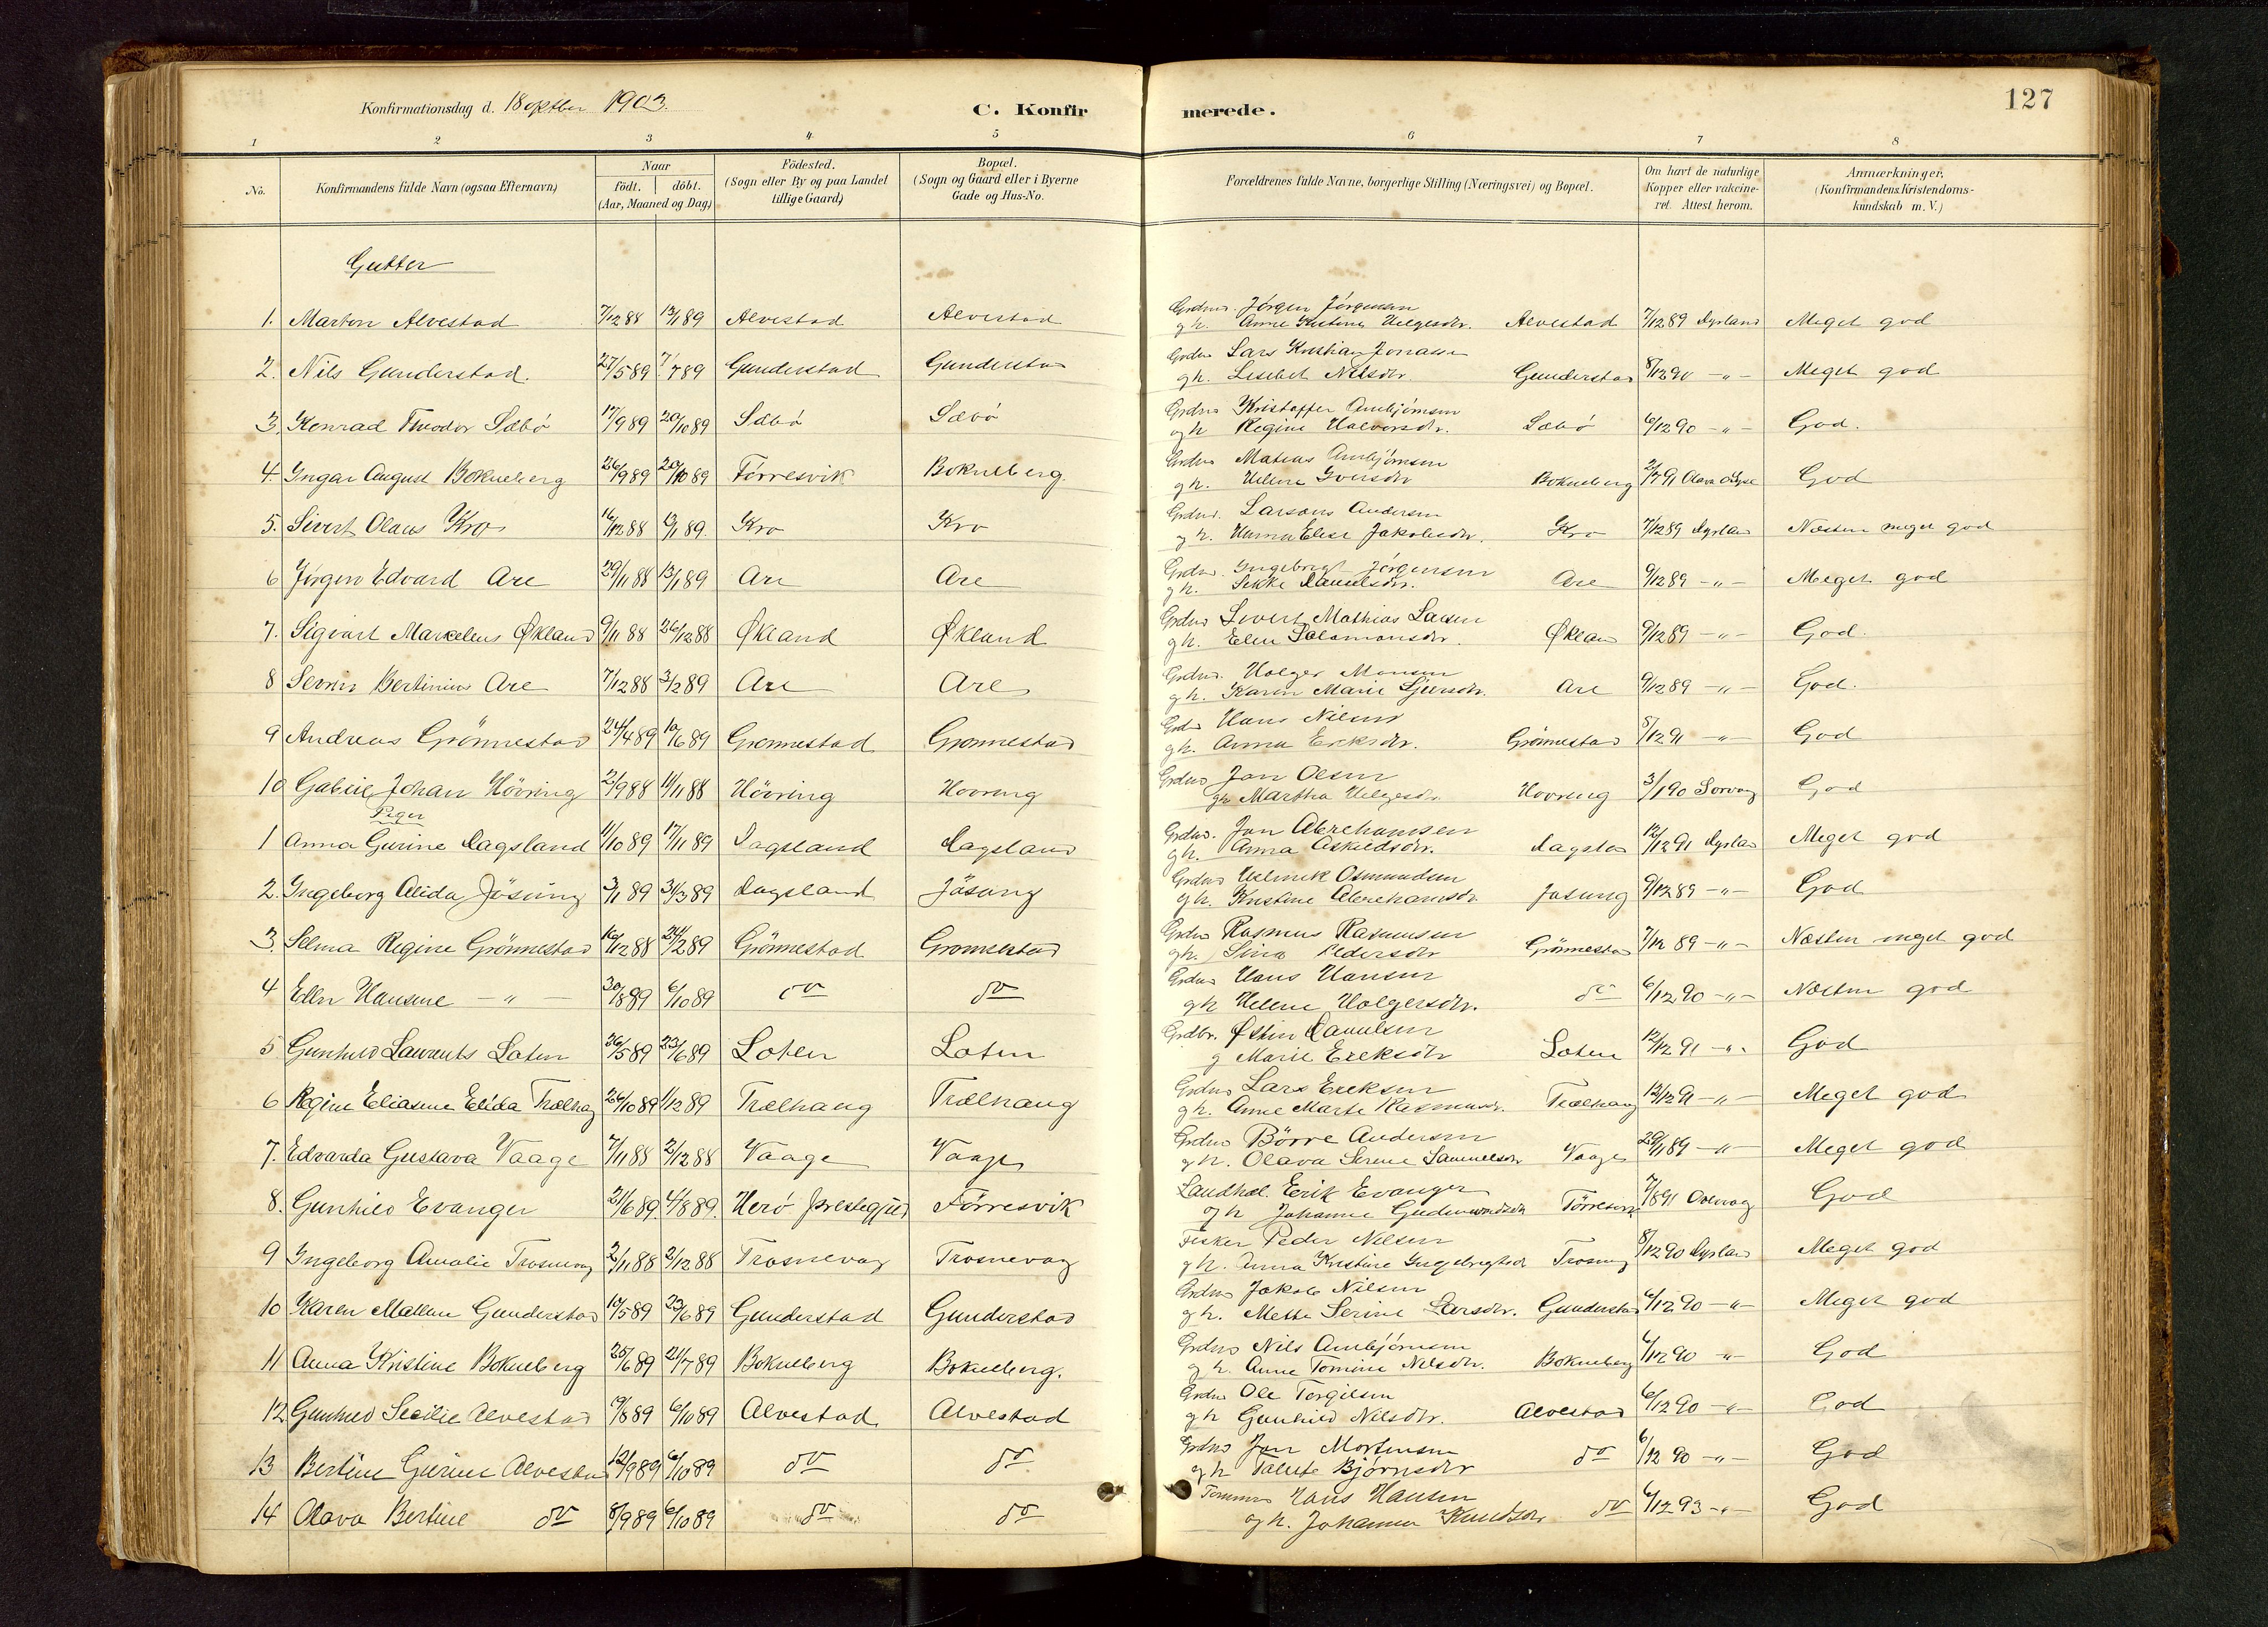 Konfirmationsdag d. 18 oktber 1903.
C. Konfirmerede.
127
1 2 3 4 5 6 7 8
No. Konfirmandens fulde Navn (ogsaa Efternavn) Naar födt. döbt. (Aar, Maaned og Dag) Födested. (Sogn eller By og paa Landet tillige Gaard) Bopæl. (Sogn og Gaard eller i Byerne Gade og Hus-No. Forældrenes fulde Navne, borgerlige Stilling (Næringsvei) og Bopæl. Om havt de naturlige Kopper eller vakcineret. Attest herom. Anmærkninger, (Konfirmandens Kristendomskundskab m. V.)
Gutter
1. Marton Alvestad 7/12 88 13/1 89 Alvestad Alvestad Grdm. Jörgen Jörgensen g h. Anne Kristine Helgesdtr. Alvestad 7/12 89 Dysland Meget god
2. Nils Gunderstad. 27/5 89 7/7 89 Gunderstad Gunderstad Lars Kristian Jonassen g h. Lisebet Nilsdtr. Gunderstad 8/12 90 -"- Meget god
3. Konrad Theodor Sæbö 17/9 89 20/10 89 Sæbö Sævö Grdm Kristoffer Ambjörnsen og h Regine Halvorsdtr. Sæbö 6/12 90 -"- God.
4. Ingar August Bokneberg 26/9 89 20/10 89 Förresvik Bokneberg. Grdm Matias Ambjörnsen g h. Helene Iversdtr Bokneberg 2/7 91 God
5. Sivert Olaus Kro 16/12 88 13/1 89. Kro Kro Grdm. Larsons Andersen g h. Hanna Elise Jakobsdtr. Kro 7/12 89 Dysland Næsten meget god
6 Jörgen Edvard Are 29/11 88 13/1 89 Are Are Grdm. Ingebrigt Jörgensen g h. Sikke Danielsdtr. Are 9/12 89 -"- Meget god
7. Sigvart Marcelius Økland 9/11 88 26/12 88 Økland Økland Grdm Sivert Mathias Larsen g h. Elen Salamonsdtr. Økland 9/12 89 -"- God.
8 Bertinius Are 7/12 88 3/2 89 Are Are Grdm. Holger Monsen g h. Karen Marie Sjursdtr. Are 9/12 89 -"- God.
9 Andreas Grönnestad 24/4 89 10/6 89 Grönnestad Grönnestad Hans Nilsen g h. Anna Eriksdtr. Grönnestad 5/12 91 -"- God
10 Gabriel Johan Hövring 2/9 88 11/11 88 Hövring Hovring Grdm Jan Olsen g h Martha Helgesdtr. Hovring 3/1 90 God
Piger
1 Anna Gurine Dagsland 11/10 89 17/11 89 Dagsland Dagsland Grdm. Jan Abrehamsen g h. Anna Askildsdtr. Dagsland 12/12 91 Dysland Meget god
2. Ingeborg Alida Jösung 3/1 89 31/3 89 Dagsland Jösung Grdm Helmik Osmundsen g h. Kristine Abrehamsdtr. Josung 9/12 89 -"- God
3. Selma Regine Grönnestad 16/12 88 24/2 89 Grönnestad Gronnestad Grdm Rasmus Rasmussen g h. Sina Pedersdtr Grönnestad 7/12 89 -"- Næsten meget god
4 Ellen Hansine -"- 30/8 89 6/10 89 do do Grdm Hans Hansen g h Helene Holgersdtr. do 6/12 90 -"- Næsten god
5 Gunhild Laurents Loten 26/5 89 23/6 89 Loten Loten Grdbr. Østen Danielsen g Marie Eriksdtr Loten 12/12 91 -"- God
6 Regine Eliasine Elida Trælhaug 26/10 89 1/12 89 Trælhaug Trælhaug Grdm Lars Eriksen g h. Anne Marte Rasmusdtr. Trælhaug 12/12 91 -"- Meget god
7. Edvarda Gustava Vaage 7/11 88 2/12 88 Vaage Vaage Grdm Börre Andersen g h. Olava Serine Samuelsdtr Vaage 29/11 89 -"- Meget god
8. Gunhild Evanger 21/6 89. 4/8 89. Herö prestegjeld Förresvik Landhdl. Eerik Evanger og h Johanne Gudmundsdtr Törresvik 7/8 91 God
9 Ingeborg Amalie Trosnevag 2/11 88 2/12 88 Trosnevag Trosnevag Fisker Peder Nilsen g h. Anna Kristine Ingebrigtsdtr Trosnevag 8/12 90 Dysland Meget god
10 Karen Mallene Gunderstad 19/5 89 23/6 89 Gunderstad Gunderstad Grdm Jakob Nilsen g h. Mette Serine Larsdtr. Gunderstad 6/12 90 -"- Meget god
11 Anna Kristine Bokneberg 25/6 89 21/7 89 Bokneberg Bokneberg. Grdm Nils Ambjörnsen g h. Anne Tomine Nilsdtr. Bokneberg 6/12 90 -"- God
12 Gunhild Secilie Alvestad 19/8 89 6/10 89 Alvestad Alvestad Grdm Ole Torgilsen g h Gunhild Nilsdtr. Alvestad 6/12 90 -"- God
13 Bertine Gurine Alvestad 12/9 89 6/10 89 do do Grdm Jan Mortensen og h Talete Bjørnsdtr do 6/12 90 -"- God
14 Olava Bertine do 8/9 89 6/10 89 do do Hans Hansen og h. Johanna Knudsdtr do 6/12 93 -"- God